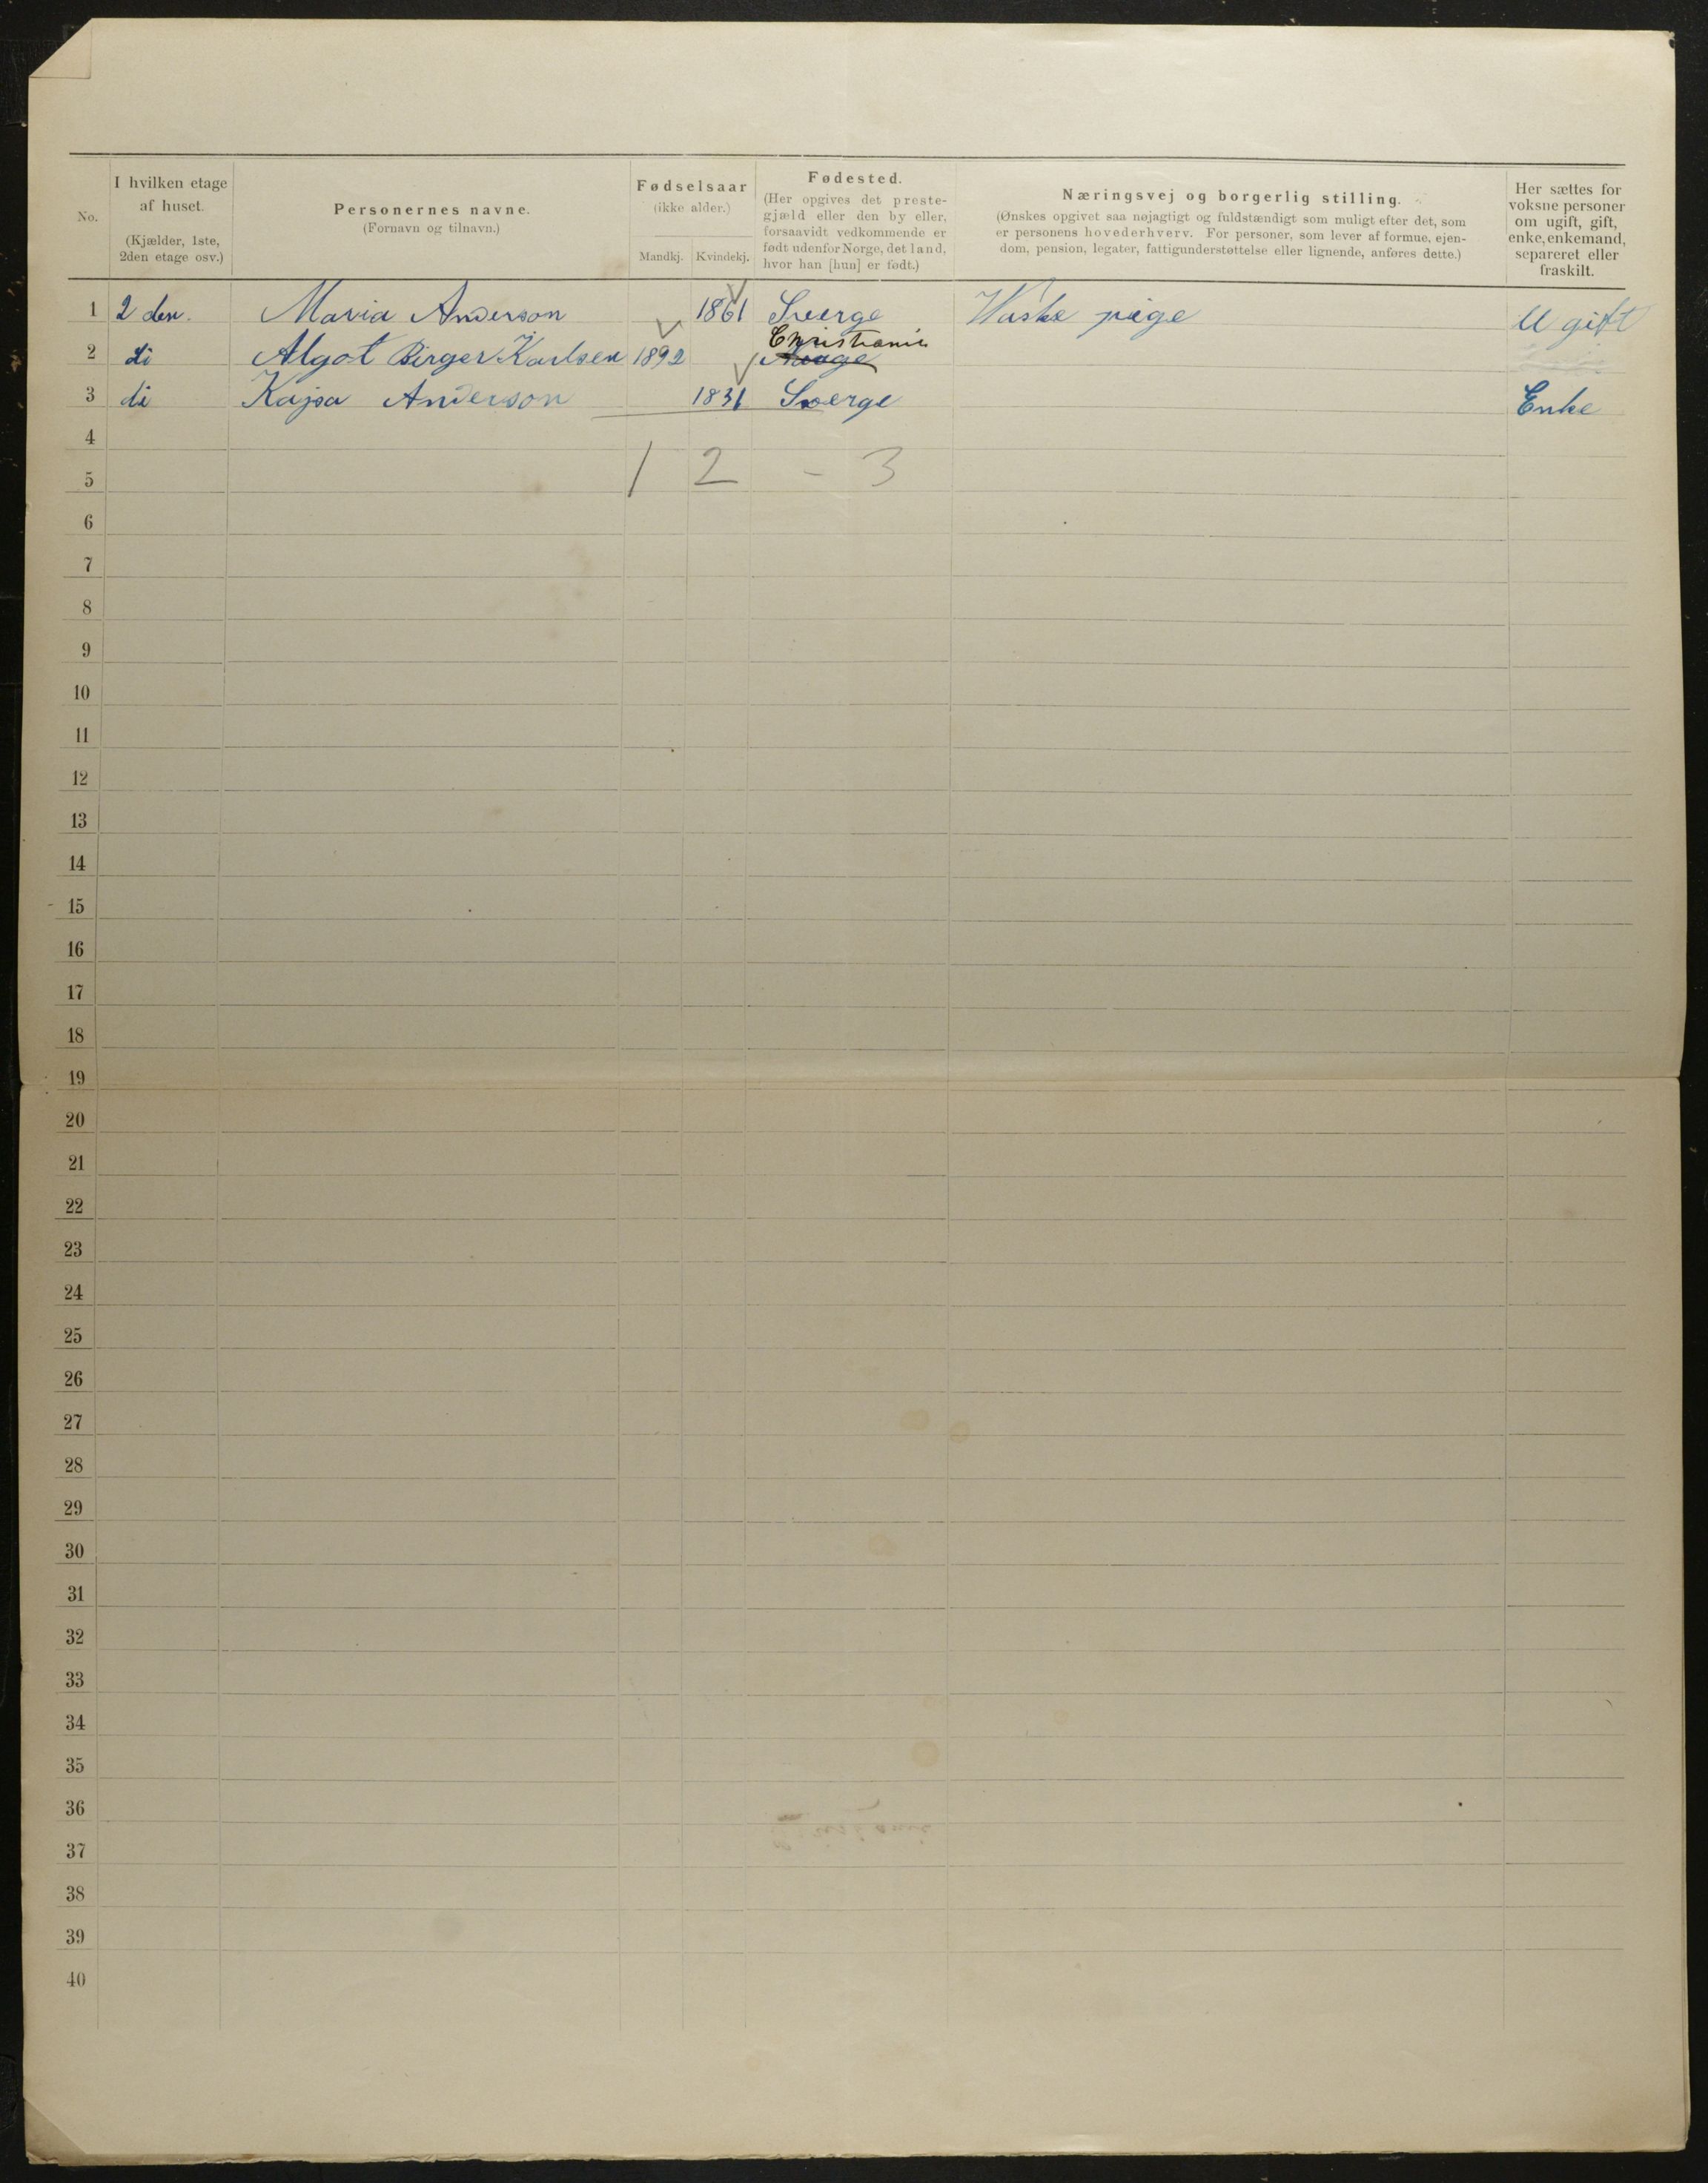 No.
I hvilken etage
af huset.
(Kjælder, 1ste,
2den etage osv.)
Personernes navne.
(Fornavn og tilnavn.)
Fødselsaar
(ikke alder.)
Mandkj. Kvindekj.
Fødested.
(Her opgives det preste-
gjæld eller den by eller,
forsaavidt vedkommende er
født udenfor Norge, det land,
hvor han [hun] er født.)
Næringsvej og borgerlig stilling.
(Ønskes opgivet saa nøjagtigt og fuldstændigt som muligt efter det, som
er personens hovederhverv. For personer, som lever af formue, ejen-
dom, pension, legater, fattigunderstøttelse eller lignende, anføres dette.)
Her sættes for
voksne personer
om ugift, gift,
enke, enkemand,
separeret eller
fraskilt.
1 2 den. Maria Anderson 1861 Sverge Waske pige Ugift
Christiania
2 di Algot Birger Karlsen 1892 Norge
3 di Kajsa Anderson 1831 Sverge Enke
4
1 2 - 3
5
6
7
8
9
10
11
12
13
14
15
16
17
18
19
20
21
22
23
24
25
26
27
28
29
30
31
32
33
34
35
36
37
38
39
40